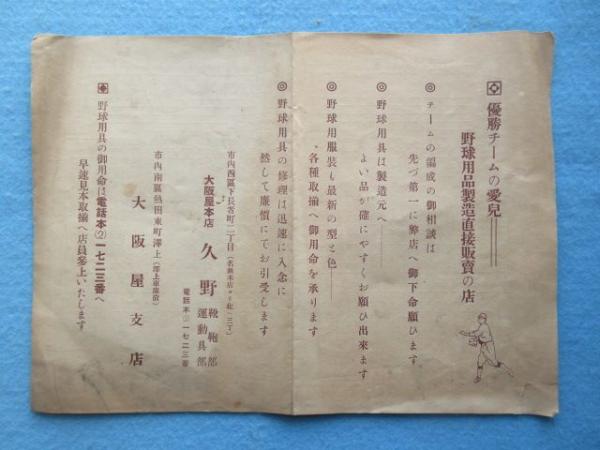 優勝チームの愛兒
野球用品製造直接販賣の店
◎チームの編成の御相談は
先づ第一に弊店へ御下命願ひます
◎野球用具は製造元へ
よい品が確にやすくお願ひ出來ます
◎野球用服裝も最新の型と色
各種取揃へ御用命を承ります
◎野球用具の修理は迅速に入念に
然して廉價にてお引受します
市内西區下長者町二丁目
大阪屋本店 久野 靴鞄部 運動具部
電話本②一七二三番
市内南區熱田東町澤上(澤上車庫前)
大阪屋支店
野球用具の御用命は電話本②一七二三番へ
早速見本取揃へ店員參上いたします